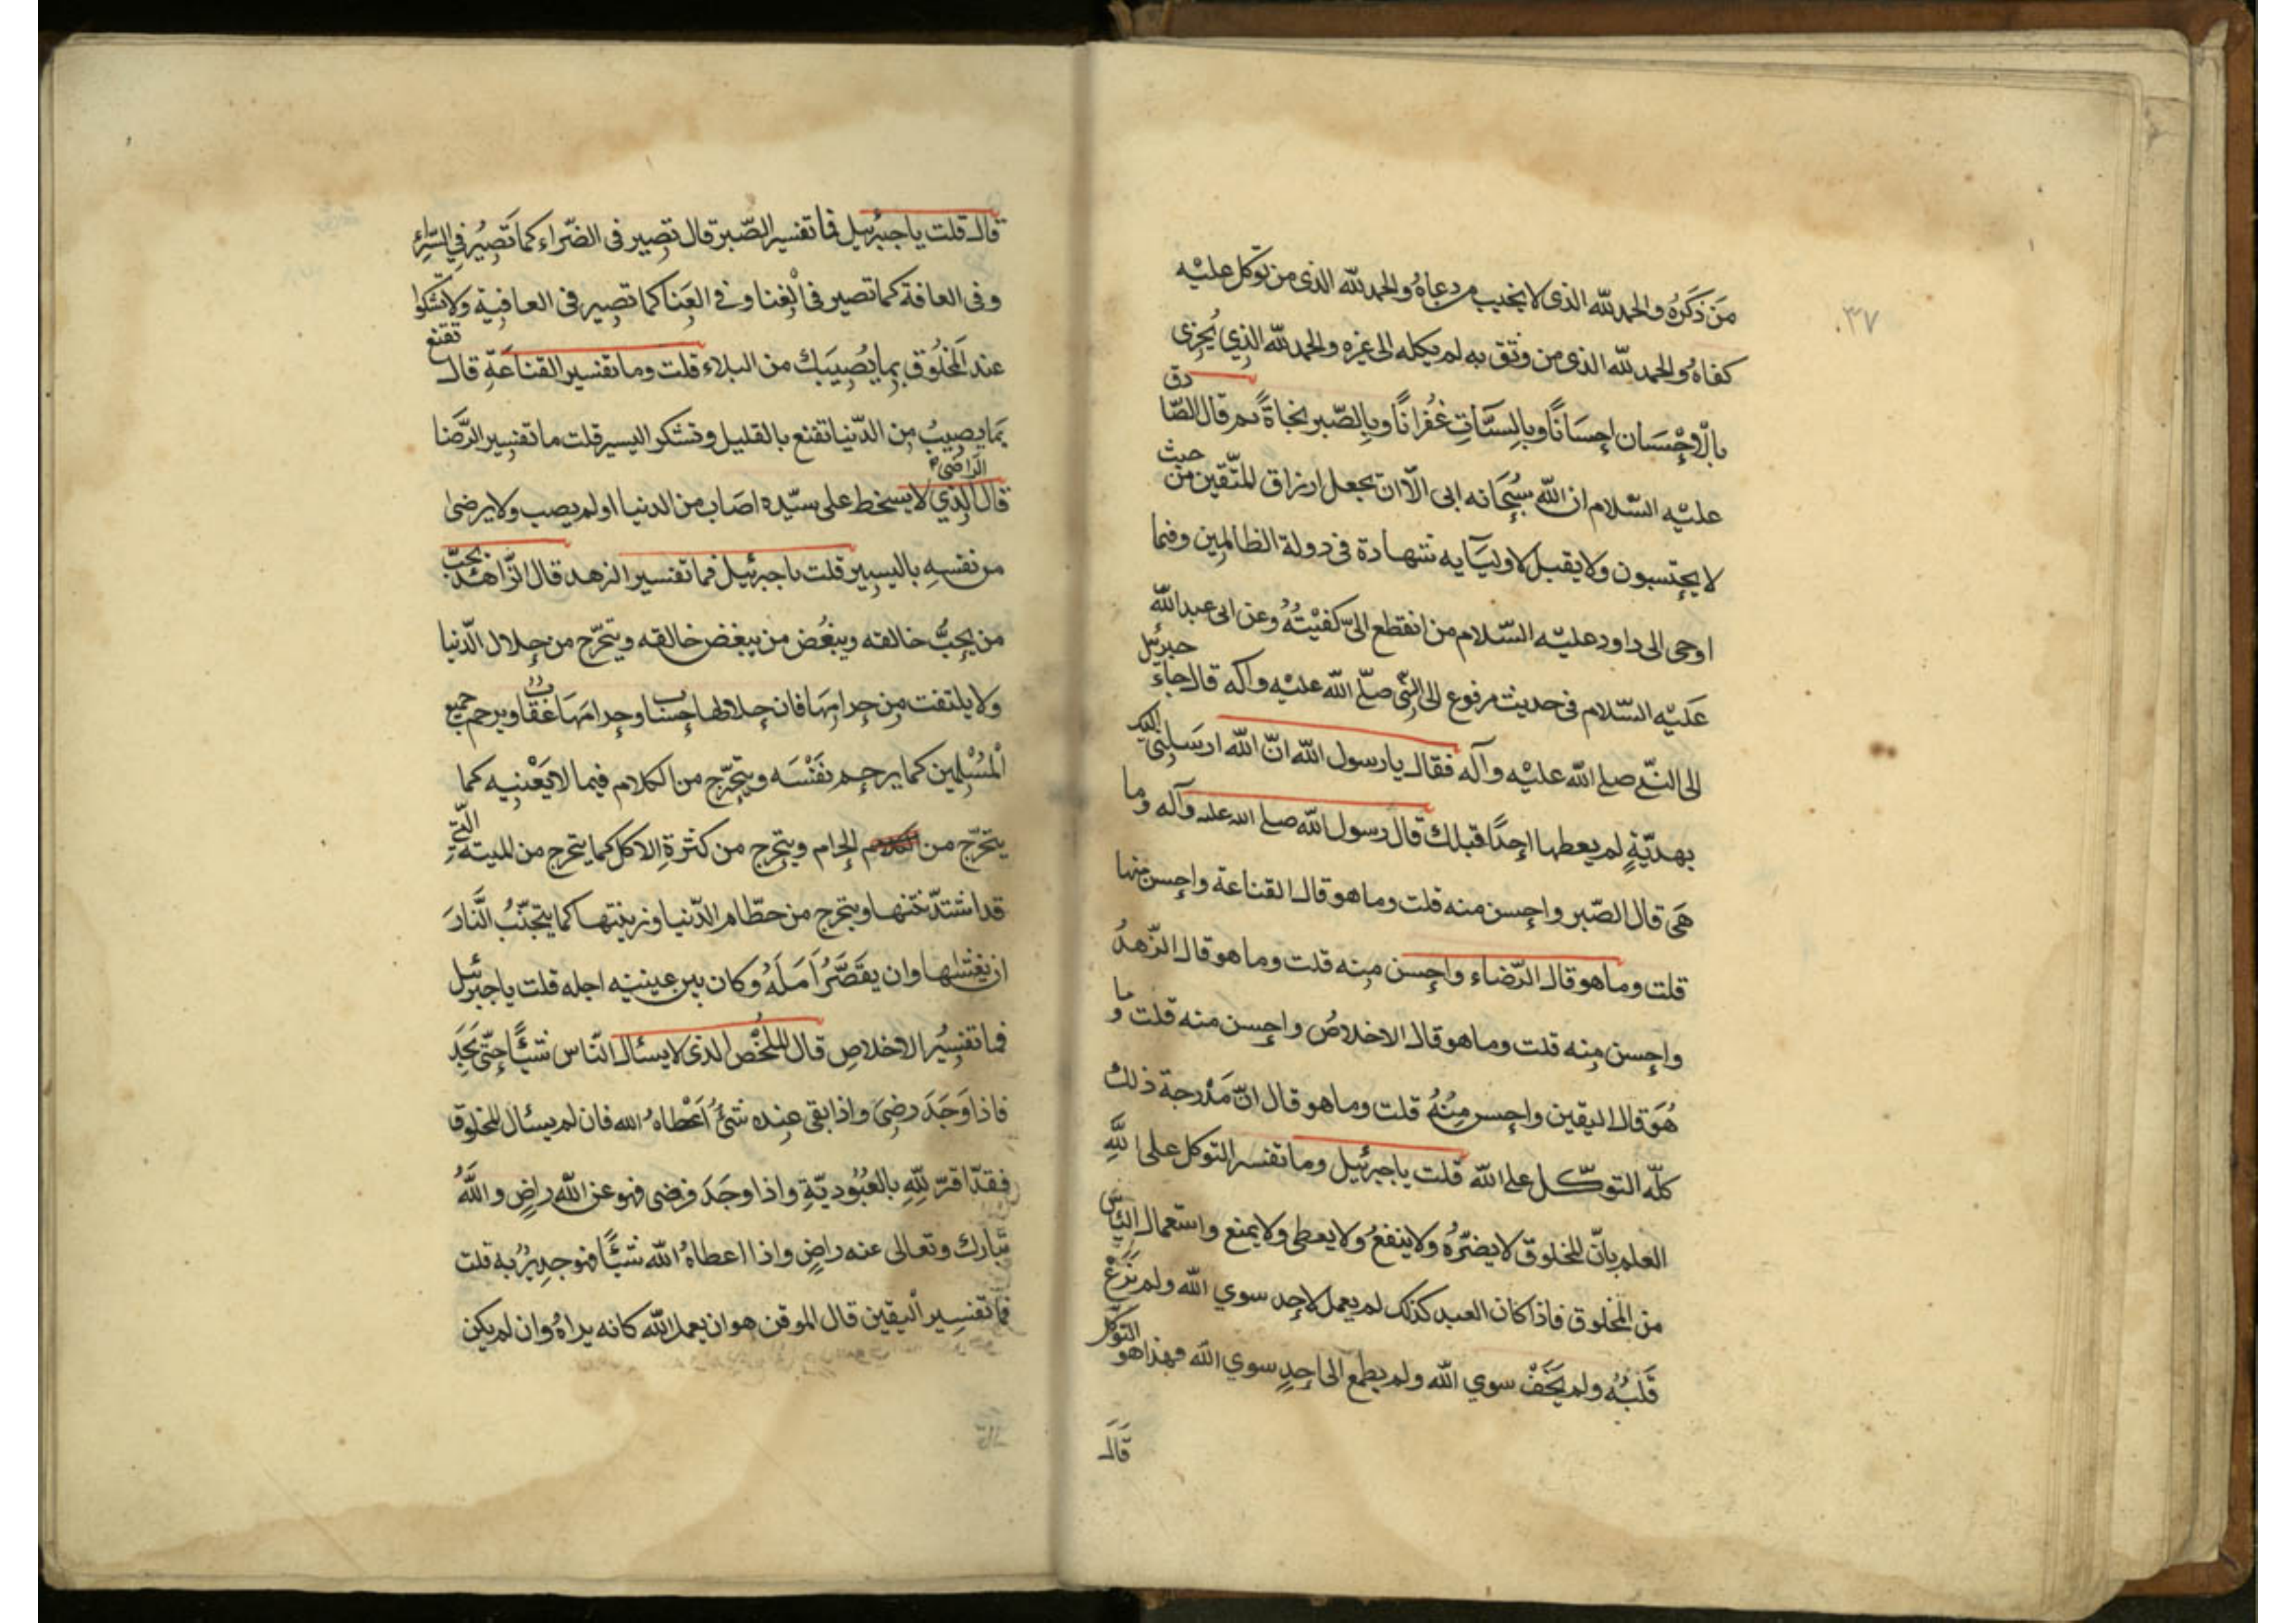 ٣٧
مَن ذَكَرَهُ والحمد للّه الذى لا يخيب من دعاهُ والحمد للّه الذى من توكل عليْه
كفاهُ والحمد للّه الذى من وثق به لم يكله الى غيره والحمد للّه الذِي يُجزى
بالْاِحْسَان اِحسَانًا وبالسيّئاتِ غُفرانًا وبالصّبر نجاةً ثم قال الصّادق
عليْه السّلام ان اللّه سُبحَانه ابى الّا ان يجعل ارزاق المتّقين من حيث
لا يحتسبون ولا يقبل لاوليَآيه شهادة فى دولة الظالمِين وفيما
اوحى الى داود عليْه السّلام من انقطع الىّ كفيْتُهُ وعن ابى عبد اللّه
عَليْه السّلام فى حديث مرفوع الى النّبى صلّى اللّه عليْه وآله قال جاءَ جبرئيل
الى النبّى صلى اللّه عليْه وآله فقال يا رسول اللّه انّ اللّه ارسَلنى اليك
بهديّةٍ لم يعطها احدًا قبلك قال رسول اللّه صلى الله عليه وآله وما
هَى قال الصّبر واحسن منه قلت وما هو قال القناعة واحسن منها
قلت وما هو قال الرّضاء واحسن مِنه قلت وما هو قال الزّهدُ
واحسن مِنه قلت وما هو قال الاخلاصُ واحسن منه قلت وما
هُوَ قال اليقين واحسن مِنْهُ قلت وما هو قال انّ مَدْرجة ذلك
كلّه التوكّل على اللّه قلت يا جبرئيل وما تفسير التوكل على اللّهِ
العلم بانّ المخلوق لا يضرُّهُ ولا ينفعُ ولا يعطى ولا يمنع واستعمال اليَأس
من المخلوق فاذا كان العبد كذلك لم يعمل لاحد سوي اللّه ولم يَزغْ
قَلْبُهُ ولم يَخَفْ سوي اللّه ولم يطمع الى احدٍ سوي اللّه فهذا هو التوكّل
قَالَ
قال قلت يا جبرئيل فما تفسير الصّبر قال تصبر فى الضّراء كما تَصبِرُ فى السّراءِ
وفى الفاقة كما تصبر فى الْغِنا وفى العَنا كما تصبر فى العافية ولا تشكوا
عند المَخلُوق بما يُصِيبَك من البلاء قلت وما تفسير القناعَةِ قال تقنع
بمَا يصيبُ مِن الدّنيا تقنع بالقليل وتشكر اليسير قلت ما تفسير الرّضا
قال الراضى الذِي لا يسخط على سيّده اصَاب من الدنيا او لم يصب ولا يرضى
من نفسِهِ باليسِير قلت يا جبرئيل فما تفسير الزهد قال الزّاهد يحبّ
من يحِبُّ خالقه ويبغُض من يبغض خالقه ويتحرّج من حلال الدّنيا
ولا يلتفت مِن حرامِهَا فان حلالها حِسَاب وحرامهَا عقاب ويرحم جميع
الْمُسْلِمِين كما يرحم نَفْسَه ويتحَرّج من الكلام فيما لا يَعْنِيه كما
يتحَرّج من الحرام ويتحرج من كثرةِ الاكل كما يتحرج من الميتة الّتى
قد اشتدّ نتنها ويتحرج من حطّام الدّنيا وزينتها كما يتجنّبُ النّارَ
ان يغشاها وان يقَصِّرُ اَمَلَهُ وكان بين عينيْه اجله قلت يا جبرئيل
فما تفسِيُر الاخلاصِ قال المخلص الذى لا يسئال النّاس شيئًا حتّى يَجِدَ
فاذا وَجَدَ رضِىَ واذا بقى عِنده شئُ اَعْطاهُ الله فان لم يسئال المخلوق
فقد اقرّ للّهِ بالعُبُوديّةِ واذا وجَدَ فرضى فهو عن اللّه راضٍ واللّهُ
تبارك وتعالى عنه راضٍ واذا اعطاهُ اللّه شيئًا فهو جدِيُر به قلت
فما تفسِير الْيقين قال الموقن هو ان يعمل للّه كانه يراهُ وان لم يكن